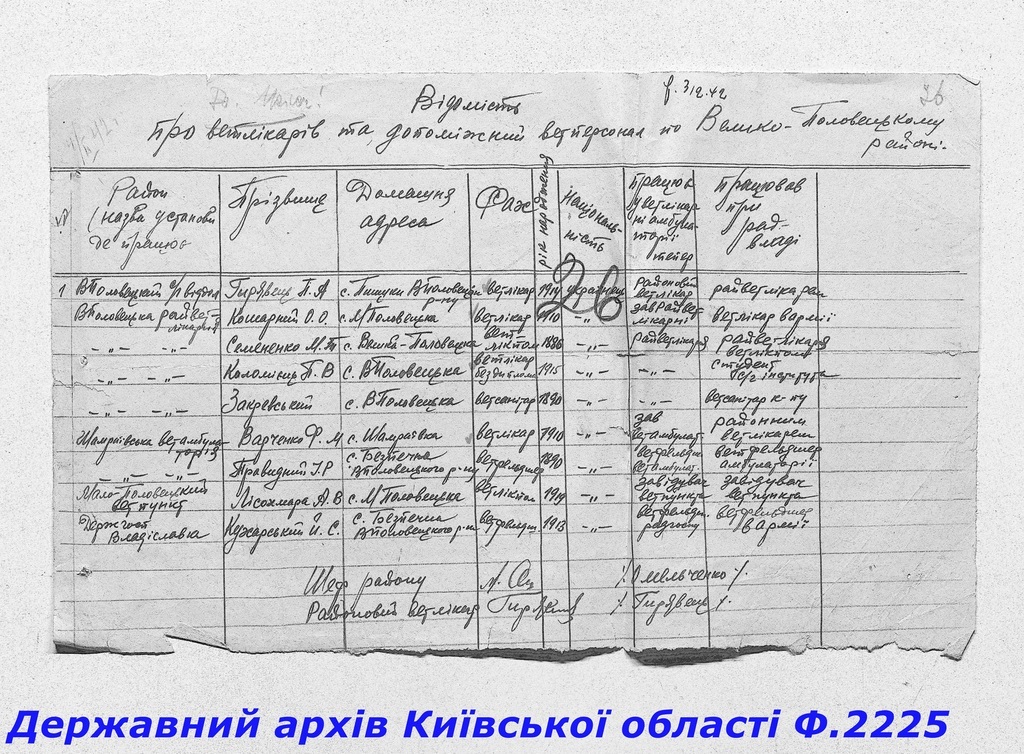 ф. 3/9.42
26
Відомість
про ветлікарів та допоміжний ветперсонал по Велико-Половецькому
районі.
Район (назва установи де працює
Прізвище
Домашня адреса
Фах
рік народження
Національність
Працює у ветлікарні амбулаторії тепер
Працював при рад-владі
26
1 ВПоловецкий с/г відділ Гирявець П.А с. Пищики ВПоловецьк р-ну ветлікар 1914 українец районовий ветлікар райветлікарем
ВПоловецька райветлікарня Кошарний О.О. с. МПоловецька ветлікар 1910 -„- завРайветлікарні ветлікар в армії
-„- -„- Семененко М.Т с. Велика-Половецька ветліктом 1886 -„- райветлікарня райветлікарня ветліктом
-„- -„- Коломієць П.В с. ВПоловецька ветлікар без диплома 1915 -„- -„- студент с/г інститута
-„- -„- Закревський с. ВПоловецька ветсанітар 1890 -„- -„- ветсанітар к-ту
Шамраївська ветамбулаторія Варченко Ф.М с. Шамраївка ветлікар 1910 -„- зав ветамбулат. районним ветлікарем
-„- -„- Правидний І.Р с. Безпечна ВПоловецького р-ну ветфельдшер 1890 -„- ветфельдш ветамбулат. ветфельдшер амбулаторії
Мало Половецький ветпункт Лісохмара А.В с. МПоловецька ветліктом 1919 -„- завідувач ветпункта завідувач ветпункта
Держгосп Владіславка Кужарський Й.С. с. Безпечна ВПоловецького р-ну ветфельдш 1913 -„- ветфельдш. радгоспу ветфельдшер в армії
Шеф району /Омельченко/.
Районовий ветлікар Гирявець /Гирявець/.
Державний архів Київської області Ф.2225